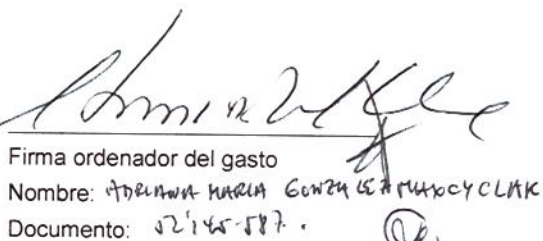 Firma ordenador del gasto
Nombre: ADRIANA MARIA GONZALEZ MAXCYCLAK
Documento: 52'145-587.